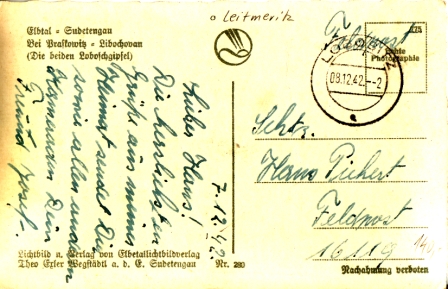 o Leitmeritz
Elbtal - Sudetengau
Bei Praskowitz - Libochovan
(Die beiden Loboschgipfel)
Feldpost
Echte
Photographie
09.12.42.--2
a
7.12.42.
Lieber Hans!
Die herzlichsten
Grüße aus
Heimat sendet Dir
sowie allen anderen
Kameraden Dein
Freund Josef.
Schtz.
Hans Pichert
Feldpost
16119
Lichtbild u. Verlag von Elbetallichtbildverlag
Theo Exler Wegstädtl a. d. E. Sudetengau Nr. 280
Nachahmung verboten